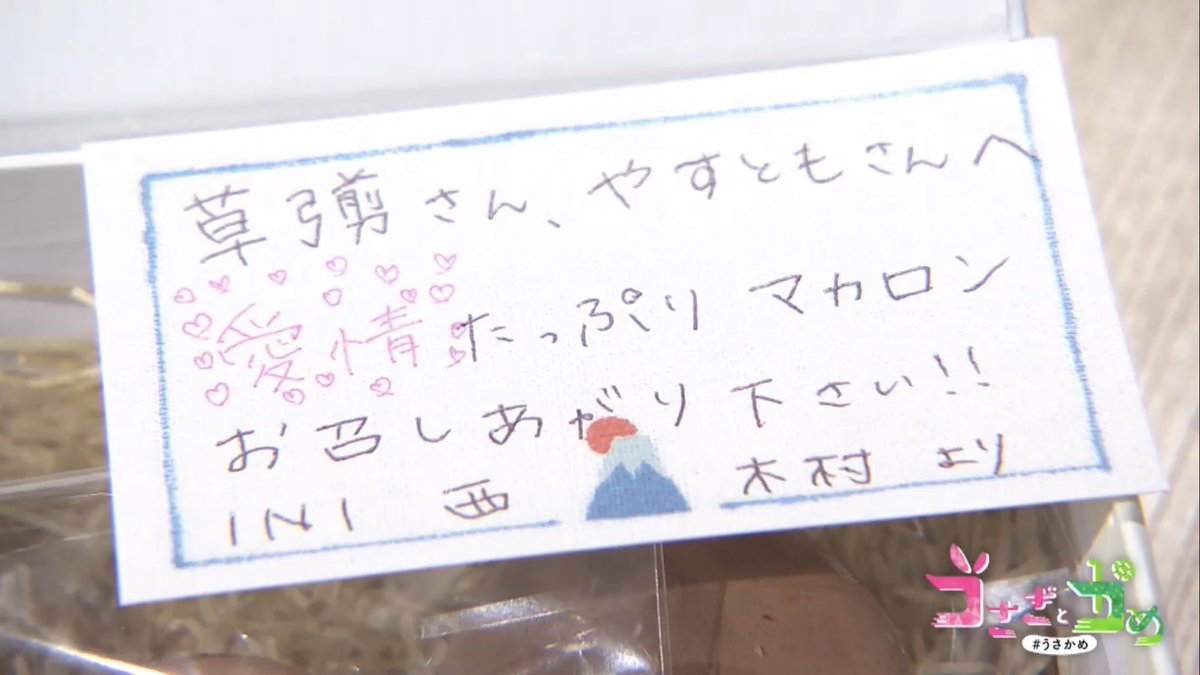 草彅さん、やすともさんへ
愛情たっぷりマカロン
お召しあがり下さい!!
INI 西 木村 より
うさぎとかめ
#うさかめ